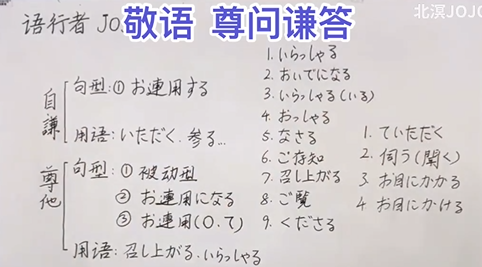 语行者 JOJ
敬语 尊问谦答
北溟JOJO
自謙
句型:① お連用する
用语:いただく、参る...
尊他
句型:① 被動型
② お連用になる
③ お連用(〇、て)
用语:召し上がる、いらっしゃる
1. いらっしゃる
2. おいでになる
3. いらっしゃる(いる)
4. おっしゃる
5. なさる
6. ご存知
7. 召し上がる
8. ご覧
9. くださる
1. ていただく
2. 伺う(聞く)
3 お目にかかる
4 お目にかける